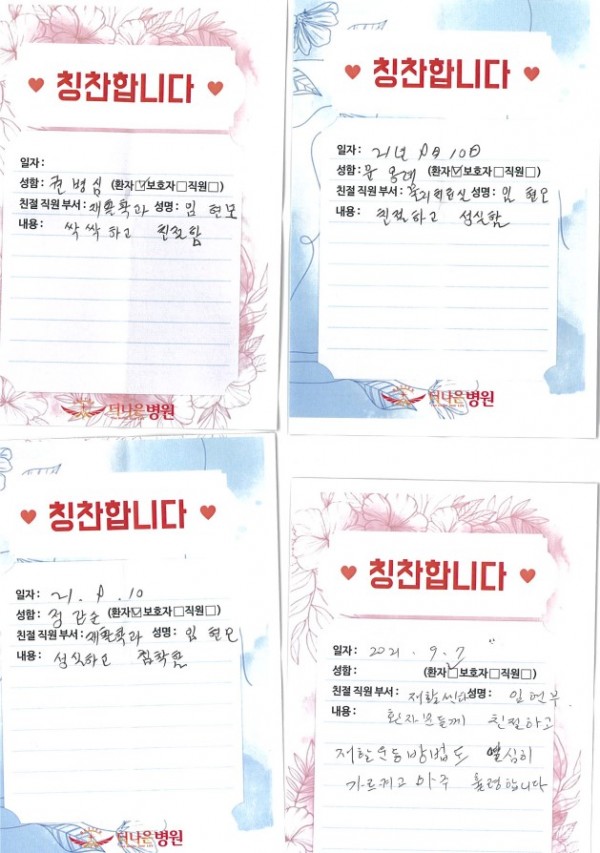 칭찬합니다
일자:
성함: 권병심 (환자☑보호자□직원□)
친절 직원 부서: 재활학과 성명: 임현모
내용: 싹싹하고 친절함
더나은병원
칭찬합니다
일자: 21년 9월 10일
성함: 문 (환자☑보호자□직원□)
친절 직원 부서: 성명: 임현모
내용: 친절하고 성실함
더나은병원
칭찬합니다
일자: 21. 9. 10
성함: 정갑순 (환자☑보호자□직원□)
친절 직원 부서: 재활학과 성명: 임현모
내용: 성실하고 침착함
더나은병원
칭찬합니다
일자: 2021. 9. 7
성함: (환자☑보호자□직원□)
친절 직원 부서: 재활센타 성명: 임현부
내용: 환자분들께 친절하고
재활운동방법도 열심히
가르케고 아주 훌령합니다